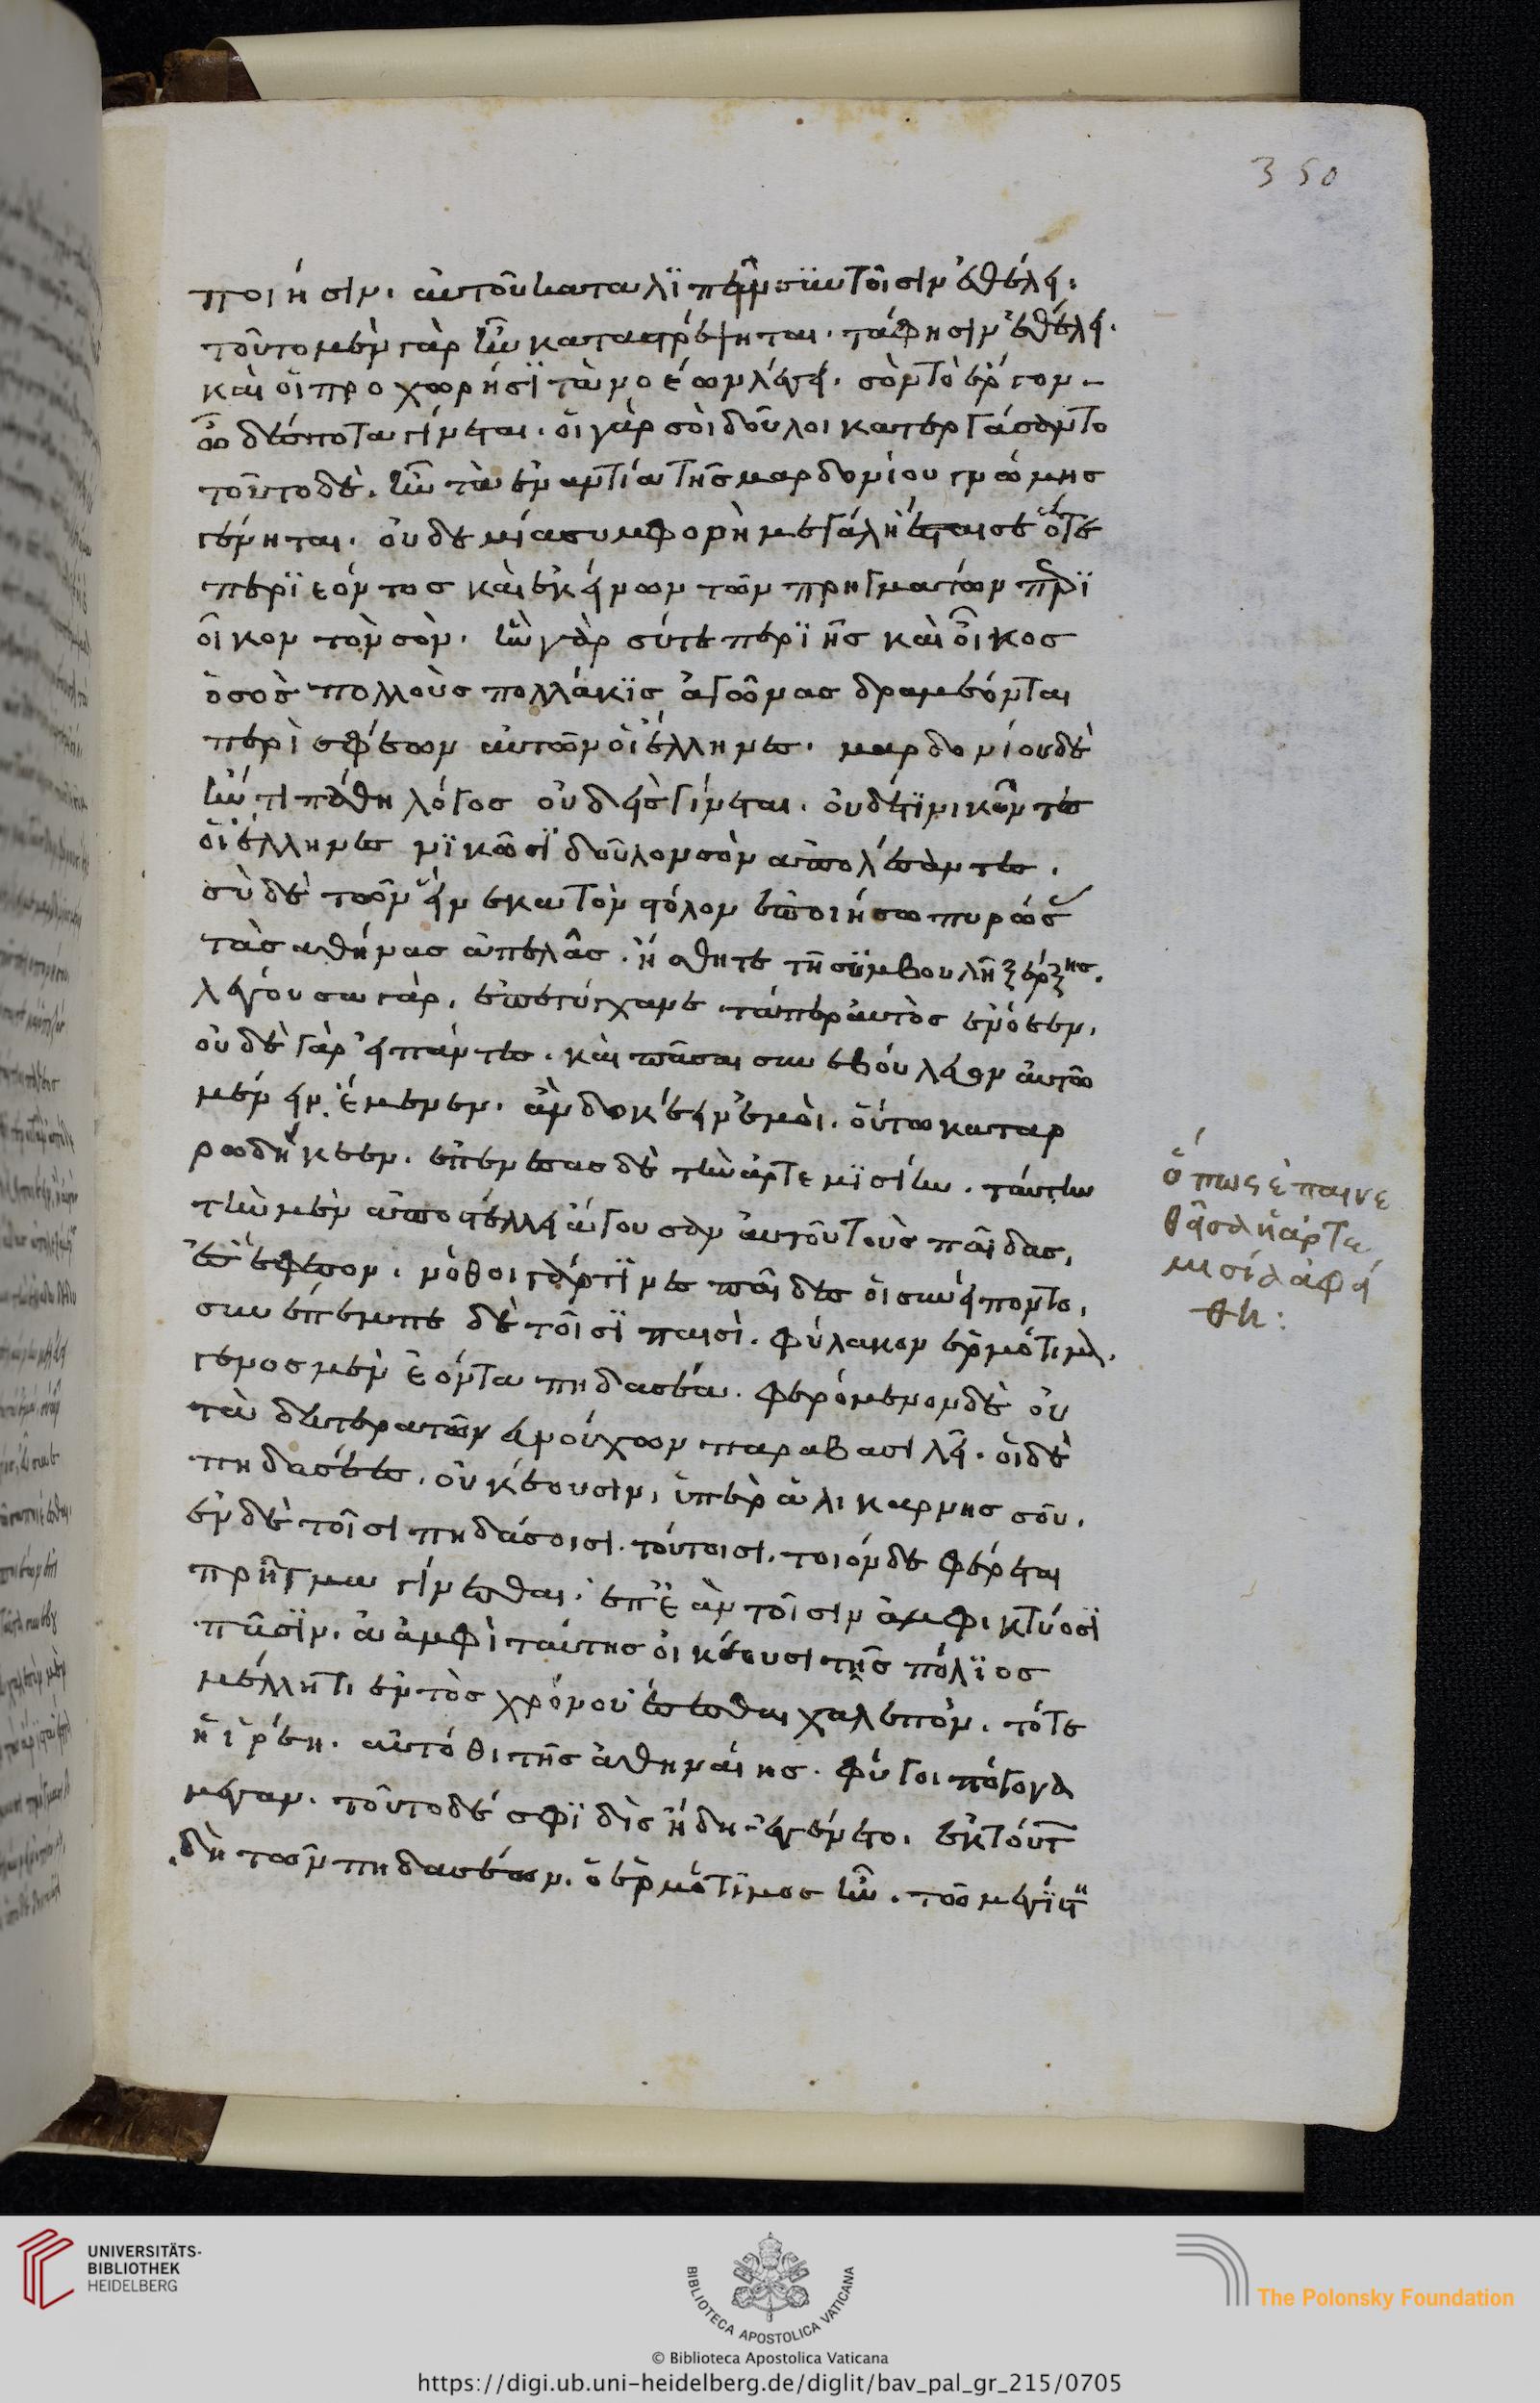 350
ποιήσιν. αὐτοῦ καταλϊπεῖν σὺν τοῖσιν ἐθέλει.
τοῦτο μὲν γὰρ ἢν καταστρέψηται. τάφησιν ἐθέλει.
καὶ οἱ προχωρήσϊ τὰ νοέων λέγει. σὸν τὸ ἔργον
ὦ δέσποτα γίνεται. οἱ γὰρ σοὶ δοῦλοι κατεργάσαντο
τοῦτο δὲ. ἢν τὰ ἐναντία τῆς μαρδονίου γνώμης
γένηται. οὐδεμία συμφορὴ μεγάλη ἔσται σέ τε
περϊεόντος καὶ ἐκείνων τῶν πρηγμάτων περὶ
οἶκον τὸν σόν. ἢν γὰρ σύ τε περϊῆς καὶ οἶκος
ὁ σὸς πολλοὺς πολλάκϊς ἀγῶνας δραμέονται
περὶ σφέων αὐτῶν οἱ ἕλληνες. μαρδονίου δὲ
ἤν τι πάθη λόγος οὐδεὶς γίνεται. οὐδέ τϊ νικῶντες
οἱ ἕλληνες νϊκῶσϊ δοῦλον σὸν ἀπολέσαντες.
σὺ δὲ τῶν εἵνεκα τὸν στόλον ἐποιήσω πυρώσας
τὰς ἀθήνας ἀπελᾶς. ἥσθη τε τῆ συμβουλῆ ξέρξης.
λέγουσα γὰρ. ἐπετύγχανε τάπερ αὐτὸς ἐνόεεν.
οὐδὲ γὰρ εἰ πάντες. καὶ πᾶσαι συνεβούλευον αὐτῶ
μένειν. ἔμενεν. ἂν δοκέειν ἐμοὶ. οὕτω καταρ
ρωδήκεεν. ἐπαινέσας δὲ τὴν ἀρτεμϊσίην. ταύτην
τὴν μὲν ἀποστέλλει ἄγουσαν αὐτοῦ τοὺς παῖδας,
ἐς ἔφεσον. νόθοι γάρ τϊνες παῖδες οἱ συνείποντο.
συνέπεμπε δὲ τοῖσϊ παισὶ. φύλακον ἑρμότιμον.
γένος μὲν ἐόντα πηδασέα. φερόμενον δὲ οὐ
τὰ δεύτερα τῶν εὐνούχων παρὰ βασιλεῖ. οἱ δὲ
πηδασέες. οἰκέουσιν, ὑπὲρ ἁλικαρνησσοῦ.
ἐν δὲ τοῖσι πηδάσοισι. τούτοισι. τοιόνδε φέρεται
πρῆγμα γίνεσθαι. ἐπεὰν τοῖσιν ἀμφικτύοσϊ
πᾶσϊν. ἀἀμφὶ ταύτης οἰκέουσι τῆς πόλϊος
μέλλῃ τι ἐντὸς χρόνου ἔσεσθαι χαλεπόν. τότε
ἡ ἱρέη. αὐτόθι τῆς ἀθηναίης. φύει πώγωνα
μέγαν. τοῦτο δέ σφϊ δὶς ἤδη ἐγένετο. ἐκ τούτ
δὴ τῶν πηδασέων. ὁ ἑρμότϊμος ἦν. τῶ μεγίστη
ὅπως ἐπαινε
θεῖσα ἡ ἀρτε
μισία ἀφεί
θη:
UNIVERSITÄTS-
BIBLIOTHEK
HEIDELBERG
BIBLIOTECA APOSTOLICA VATICANA
The Polonsky Foundation
© Biblioteca Apostolica Vaticana
https://digi.ub.uni-heidelberg.de/diglit/bav_pal_gr_215/0705